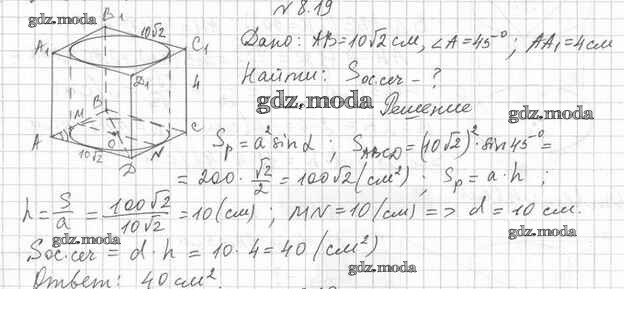 N 8.19
gdz.moda
B₁ 10√2
A₁ C₁
D₁ 4
M B
A O C
10√2 D N
Дано: AB=10√2 см, ∠A=45°; AA₁=4см
Найти: Sос.сеч – ?
gdz.moda
gdz.moda
Решение
Sр = a² sin α ; SABCD = (10√2)² · sin 45° =
= 200 · √2/2 = 100√2 (см²) ; Sр = a · h ;
h = S/a = 100√2/10√2 = 10 (см) ; MN = 10 (см) => d = 10 см.
gdz.moda
gdz.moda
Sос.сеч = d · h = 10 · 4 = 40 (см²)
gdz.moda
Ответ: 40 см².